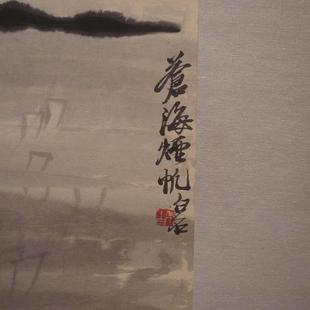 蒼海煙帆白石